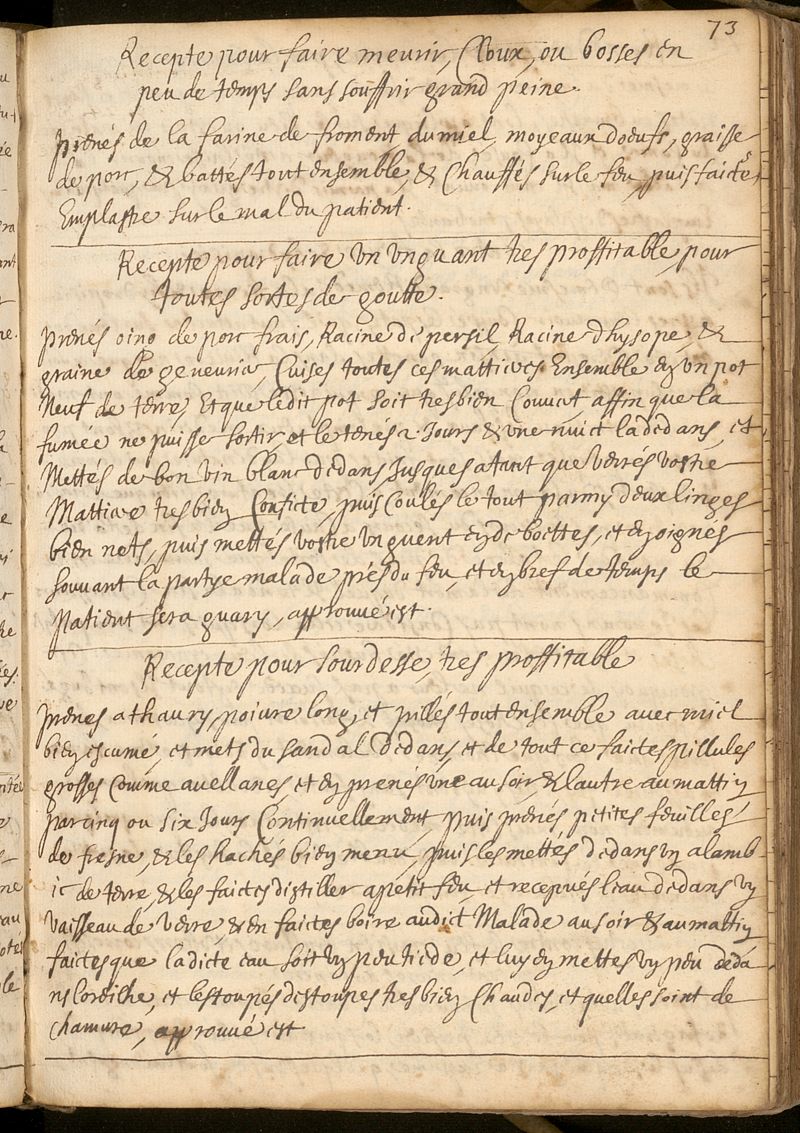 73
Recepte pour faire meurir, Cloux, ou bosses en
peu de temps sans souffrir grand peine.
prenés de la farine de froment du miel, moyeaux doeufs, graisse
de porc, & battés tout ensemble, & Chauffés sur le feu, puis faicte
Emplastre sur le mal du patient.
Recepte pour faire Un Unguant tres proffitable, pour
toutes sortes de goutte.
prenés oing de porc frais, Racine de persil, Racine dhysope, &
graine de geneurier, Cuises toutes ces mattieres Ensemble en un pot
Neuf de terre, Et que ledit pot soit tresbien Couuert affin que la
fumée ne puisse sortir, et le tenés 2 Jours & une nuict la dedans, et
Mettés de bon vin blanc dedans Jusques a tant que verrés vostre
Mattiere tresbien Conficte, puis Coulés le tout parmy deux linges
bien nets, puis mettés vostre unguent en de boettes, et en oignes
souuant la partye malade prés du feu, et en bref de temps le
patient sera guary, approuué est.
Recepte pour sourdesse, tres proffitable
prenes athaury, poiure long, et pillés tout ensemble auec miel
bien escumé, et mets du sandal dedans, et de tout ce faictes pillules
grosses Comme auellanes, et en prenés une au soir, & lautre au mattin
par cinq ou six Jours Continuellement, puis prenés petites feuilles
de fresne, & les hachés bien menu, puis les mettes dedans un alamb
ic de terre, & les faictes distiller a petit feu, et receptués leau dedans un
vaisseau de verre, & en faictes boire audict Malade au soir & au mattin
faictes que ladicte eau soit un peu tiede, et luy en mettes un peu deda
ns loreilhe, et lestoupés destoupes tresbien Chaudes, et quelles soint de
Chamure, approuué est